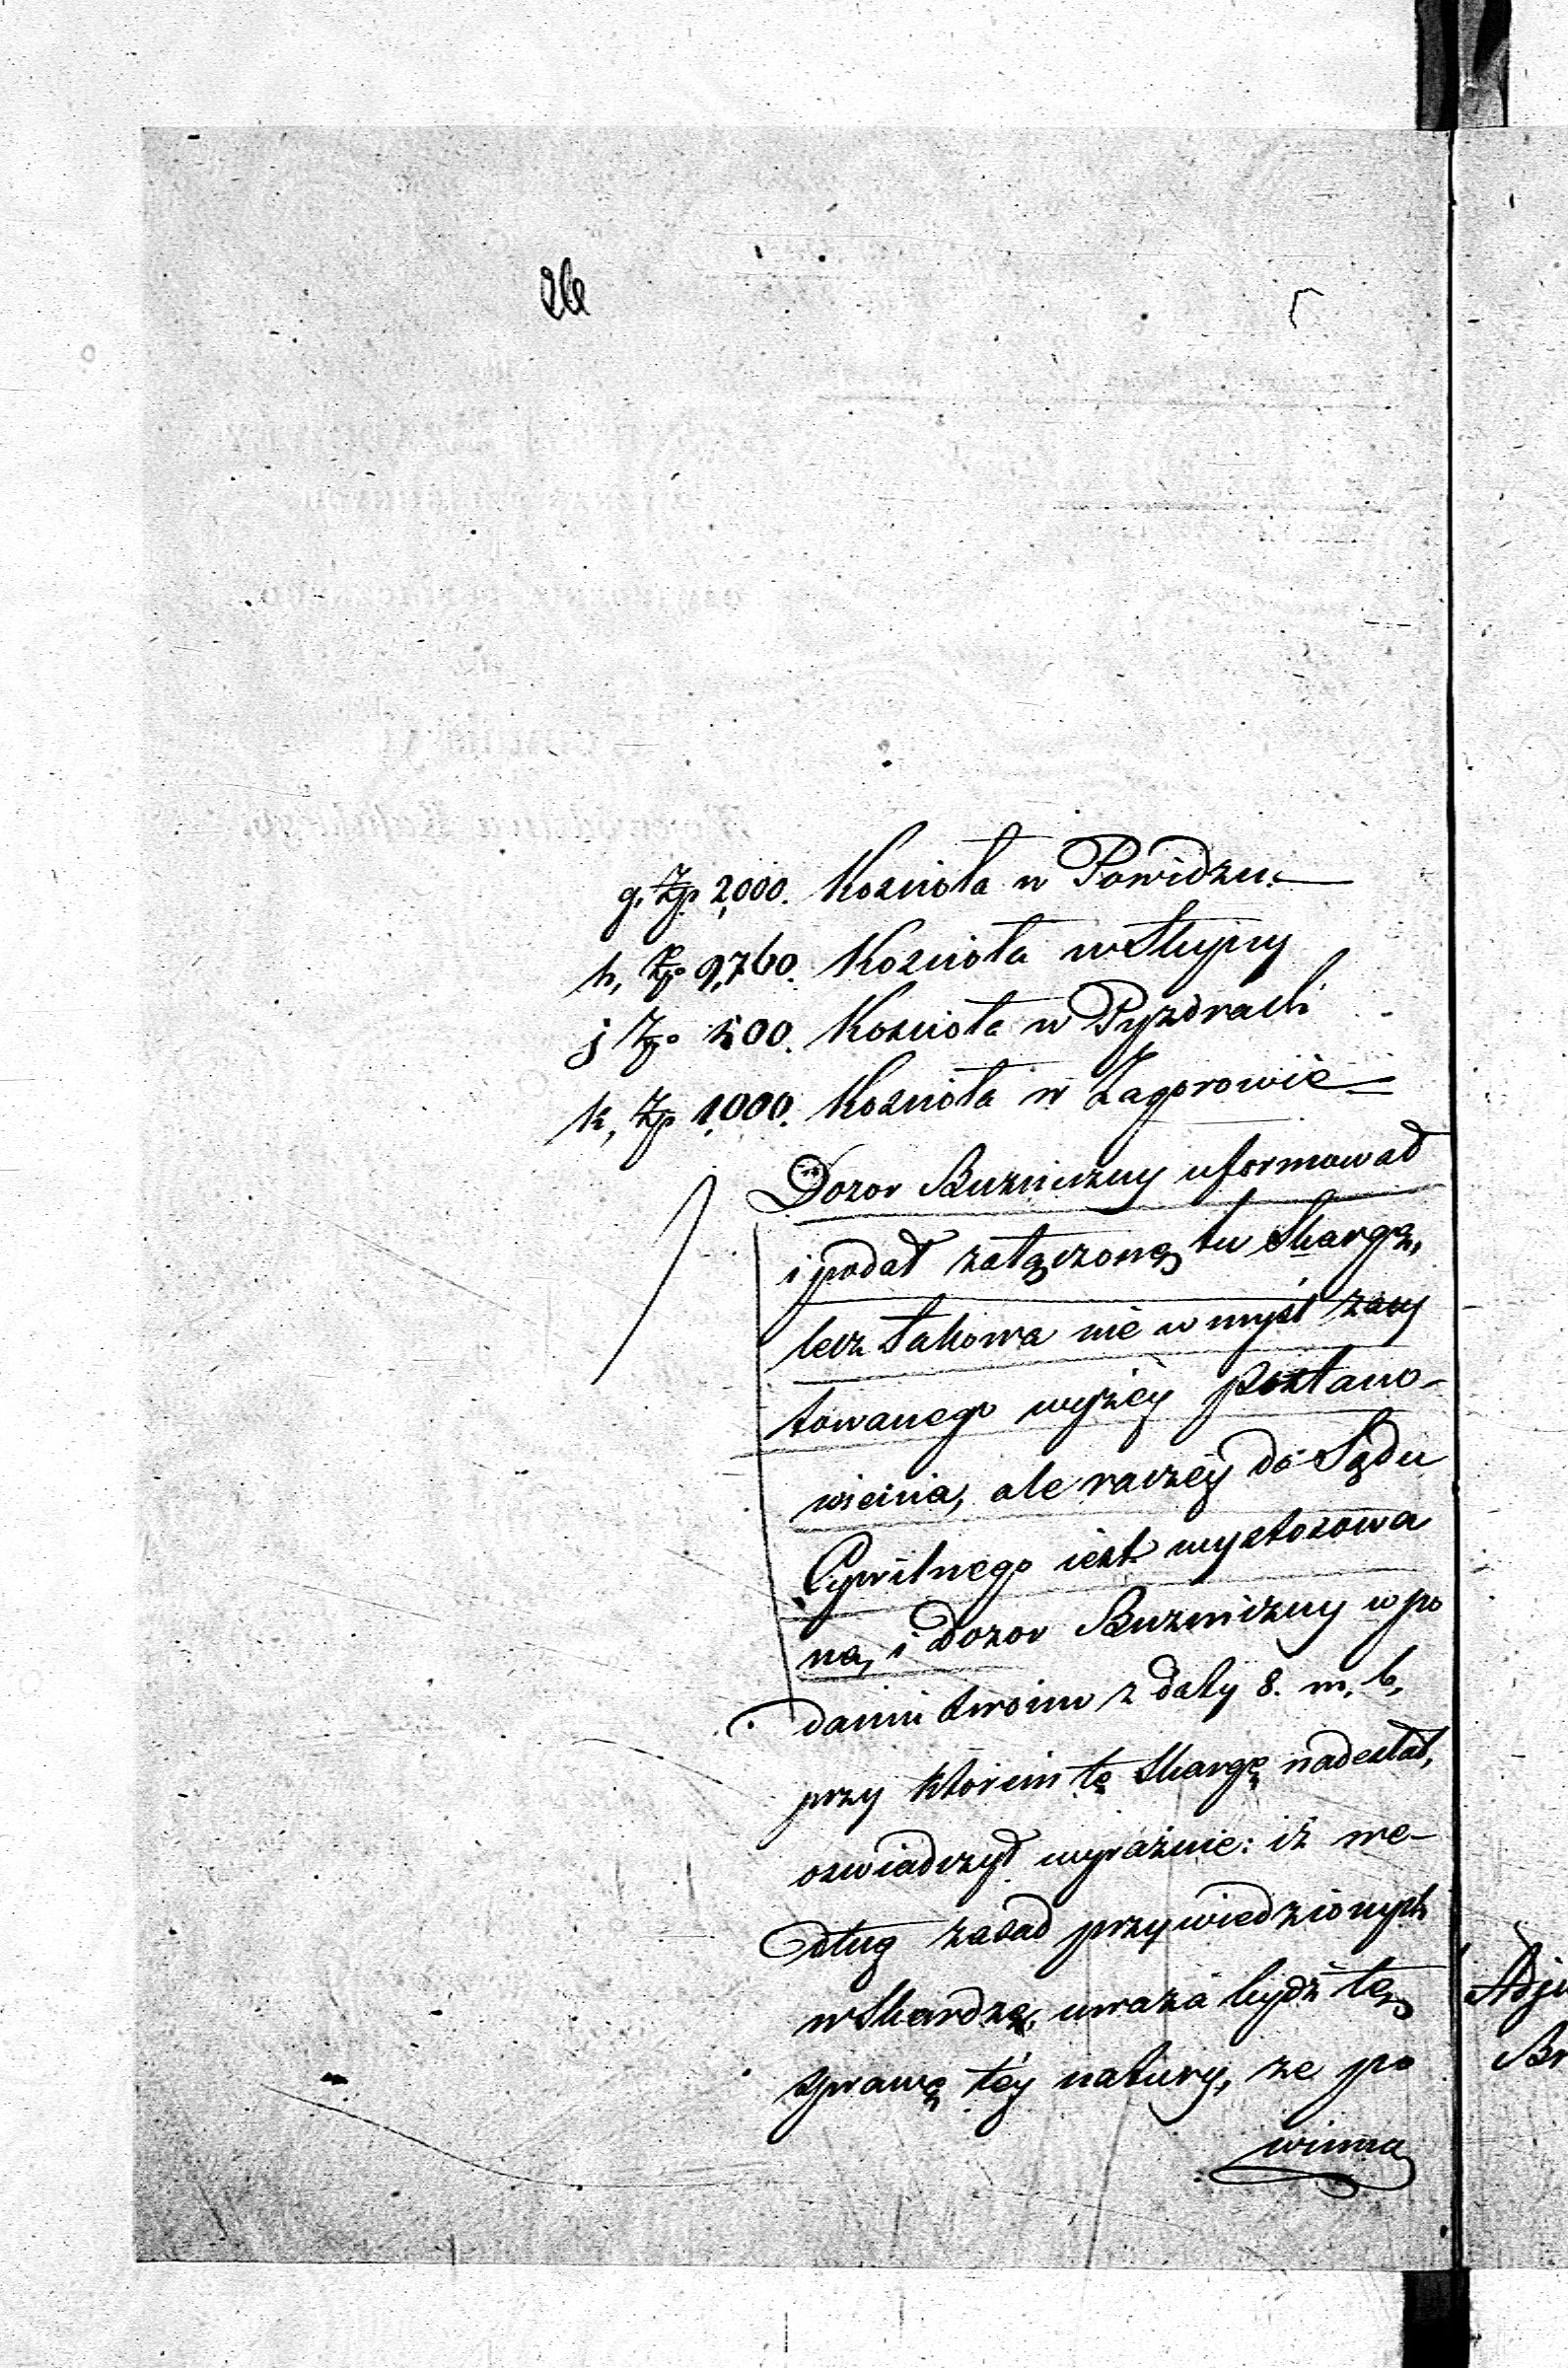 26
g, Zp. 2,000. Kościoła w Powidzu.
h, Zp. 9,760. Kościoła w Słupcy
j Zp. 500. Kościoła w Pyzdrach
k, Zp 1,000. Kościoła w Zagorowie
Dozor Bużniczny uformował
i podał załączoną tu Skargę,
lecz takowa nie w myśl zacy
towanego wyżey postano-
wienia, ale raczéy do Sądu
Cywilnego iest wystosowa
na, i Dozor Bużniczny w po
daniu swoim z daty 8. m. b,
przy którem tę Skargę nadesłał,
oświadczył wyraźnie: iż we-
dług zasad przywiedzionych
w Skardze, uważa bydź tę
sprawę téy natury, że po
winna
Adju
Br